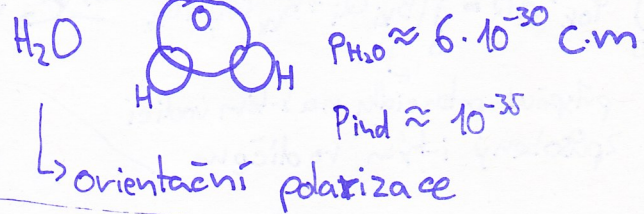 H₂O O H H p_H₂O ≈ 6·10⁻³⁰ C·m
p_ind ≈ 10⁻³⁵
↳ orientační polarizace